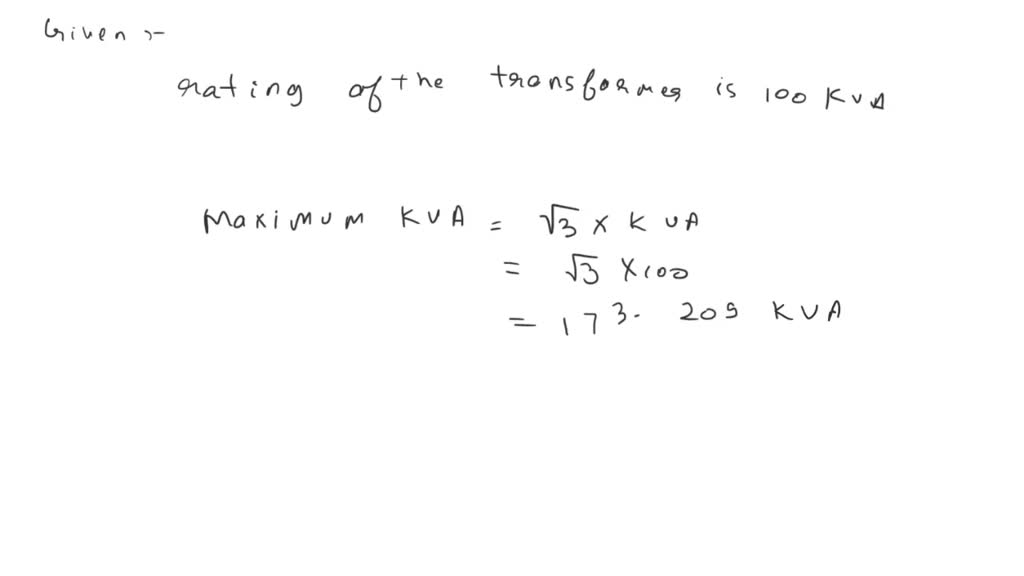 Given :-
rating of the transformer is 100 KVA
Maximum KVA = √3 × KVA
= √3 × 100
= 173. 205 KVA